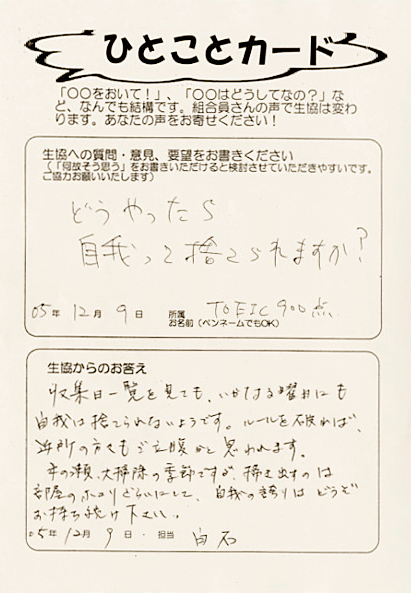 ひとことカード
「〇〇をおいて！」、「〇〇はどうしてなの？」な
ど、なんでも結構です。組合員さんの声で生協は変わ
ります。あなたの声をお寄せください！
生協への質問・意見、要望をお書きください
（「何故そう思う」をお書きいただけると検討させていただきやすいです。
ご協力お願いいたします）
どうやったら
自我って捨てられますか？
05年 12月 9日 所属 TOEIC 900点
お名前（ペンネームでもOK）
生協からのお答え
収集日一覧を見ても、いかなる曜日にも
自我は捨てられないようです。ルールを破れば、
近所の方々もご立腹かと思われます。
年の瀬、大掃除の季節ですが、掃き出すのは
部屋のホコリぐらいにして、自我の誇りはどうぞ
お持ち続け下さい。
05年 12月 9日・担当 白石